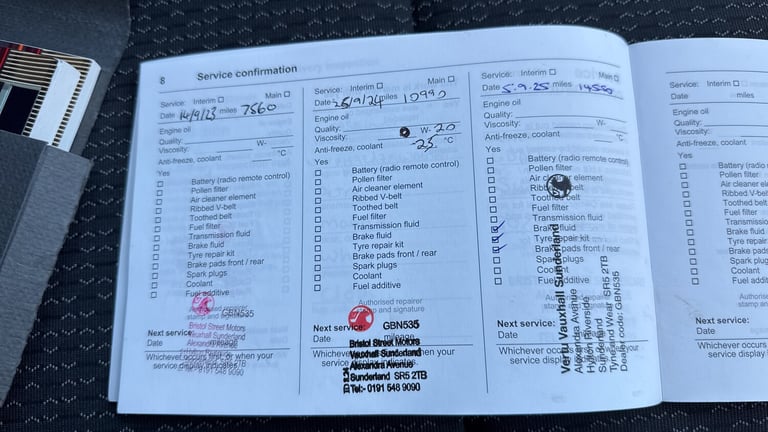 8
Service confirmation
Service: Interim Main
Date 14/9/23 miles 7560
Engine oil
Quality:
Viscosity: W-
Anti-freeze, coolant °C
Yes
Battery (radio remote control)
Pollen filter
Air cleaner element
Ribbed V-belt
Toothed belt
Fuel filter
Transmission fluid
Brake fluid
Tyre repair kit
Brake pads front / rear
Spark plugs
Coolant
Fuel additive
Authorised repairer
stamp and signature
GBN535
Bristol Street Motors
Vauxhall Sunderland
Alexandra Avenue
Next service:
Date mileage
Whichever occurs first, or when your
service display indicates.
Tel:- 0191 548 9090
Service: Interim Main
Date 25/9/24 miles 10990
Engine oil
Quality:
Viscosity: 0 W- 20
Anti-freeze, coolant -25 °C
Yes
Battery (radio remote control)
Pollen filter
Air cleaner element
Ribbed V-belt
Toothed belt
Fuel filter
Transmission fluid
Brake fluid
Tyre repair kit
Brake pads front / rear
Spark plugs
Coolant
Fuel additive
Authorised repairer
stamp and signature
GBN535
Next service:
Date mileage
Bristol Street Motors
Vauxhall Sunderland
Alexandra Avenue
Sunderland SR5 2TB
Tel:- 0191 548 9090
Whichever occurs first, or when your
service display indicates.
Service: Interim Main
Date 5.9.25 miles 14550
Engine oil
Quality:
Viscosity: W-
Anti-freeze, coolant °C
Yes
Battery (radio remote control)
Pollen filter
Air cleaner element
Ribbed V-belt
Toothed belt
Fuel filter
Transmission fluid
Brake fluid
Tyre repair kit
Brake pads front / rear
Spark plugs
Coolant
Fuel additive
Vertu Vauxhall Sunderland
Alexandra Avenue
Hylton Riverside
Sunderland
Tyne and Wear SR5 2TB
Dealer code: GBN535
Next service:
Date
Whichever occurs first, or when your
service display
Service: Interim
Date miles
Engine oil
Quality:
Viscosity:
Anti-freeze, coolant
Yes
Battery (radio
Pollen filter
Air cleaner
Ribbed V-belt
Toothed belt
Fuel filter
Transmission
Brake fluid
Tyre repair
Brake pads
Spark plugs
Coolant
Fuel additive
Next service:
Date
Whichever occurs
service display